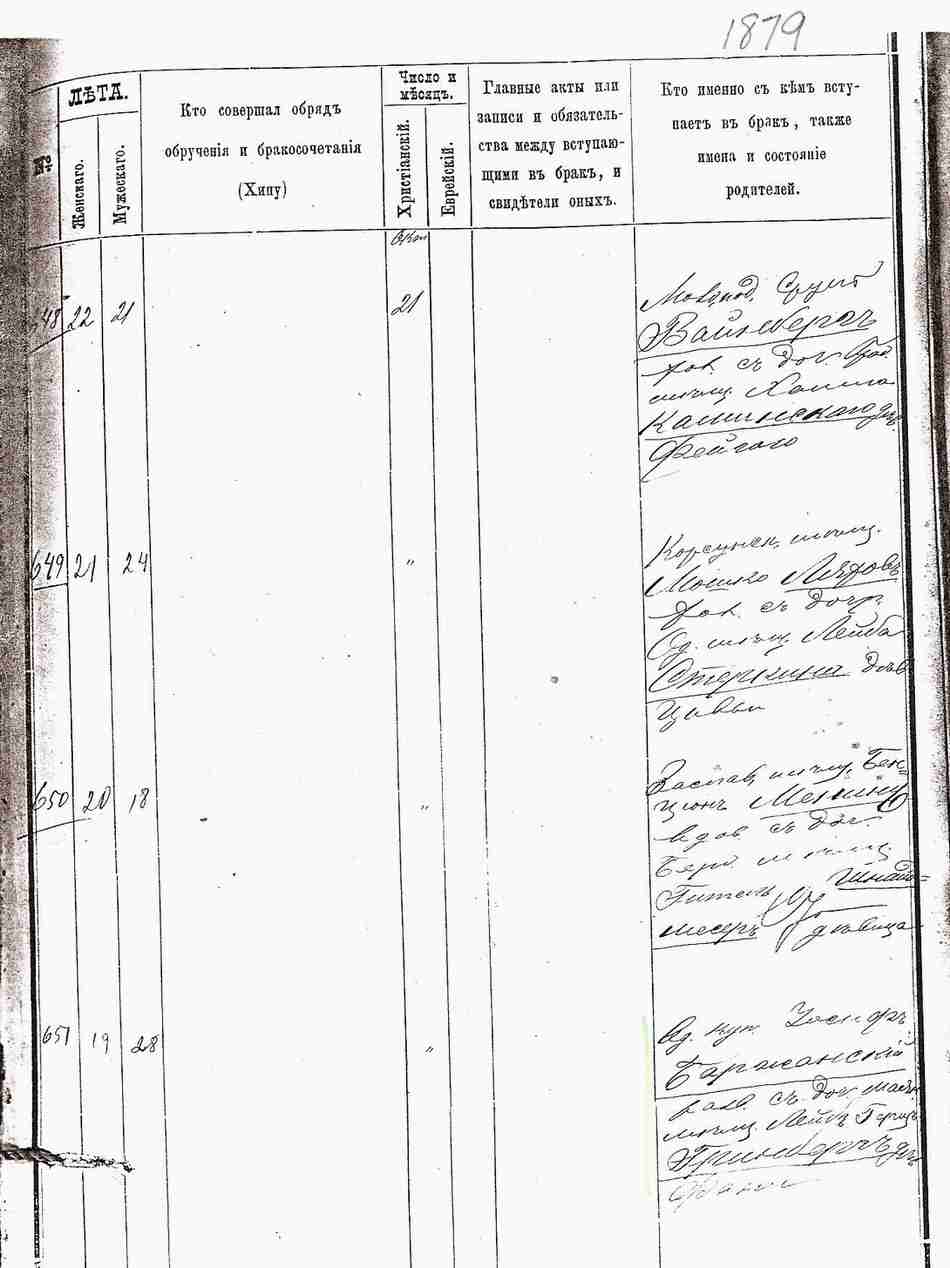 1879
№
ЛѢТА.
Женскаго.
Мужескаго.
Кто совершалъ обрядъ
обрученія и бракосочетанія
(Хипу)
Число и
мѣсяцъ.
Христіанскій.
Еврейскій.
Главные акты или
записи и обязатель-
ства между вступаю-
щими въ бракъ, и
свидѣтели оныхъ.
Кто именно съ кѣмъ всту-
паетъ въ бракъ, также
имена и состояніе
родителей.
Окт
648 22 21 21
Сруль
Вайнбергъ
съ доч.
мѣщ. Хаима
Каминскаго дѣв.
Фейгою
649 21 24 "
Корсунск. мѣщ.
Мошко Ляховъ
съ дочр.
Од. мѣщ. Лейба
дѣв
Цивьи
650 20 18 "
Заслав. мѣщ. Бен-
ціонъ
вдов съ доч.
Берд. мѣщ
Гитель Шнайд-
месеръ дѣвица
651 19 28 "
Од. куп. Іосифъ
Баржанскій
разв. съ доч.
мѣщ. Лейбъ Герш
Гринбергъ дѣв